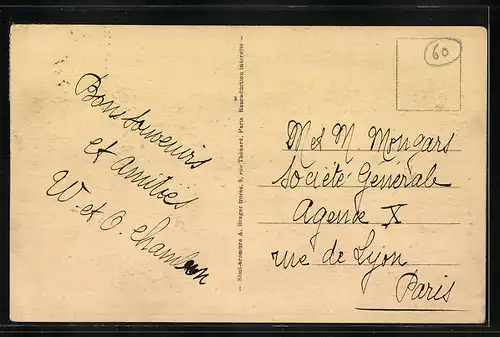 Bons souvenirs
et amitiés
W. et O. Chambon
— Simi-bromure A. Breger frères, 9, rue Thénard, Paris Reproduction interdite —
60
M. Mongars
Société Générale
Agence X
rue de Lyon
Paris